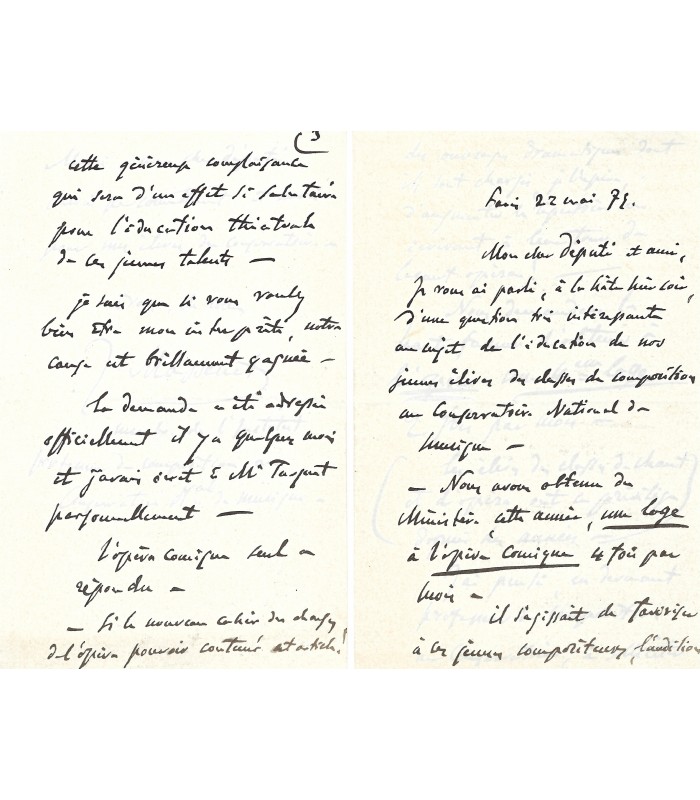 Paris 22 mai 79.
Mon cher député et ami,
Je vous ai parlé, à la hâte hier soir,
d'une question très intéressante
au sujet de l'éducation de nos
jeunes élèves des classes de composition
au Conservatoire National de
musique —
— Nous avons obtenu du
Ministère cette année, une loge
à l'opéra Comique 4 fois par
mois —
il s'agissait de favoriser
à ces jeunes compositeurs, l'audition
3
cette généreuse complaisance
qui sera d'un effet si salutaire
pour l'éducation théâtrale
de ces jeunes talents —
je sais que si vous voulez
bien être mon interprète, notre
cause est brillamment gagnée —
La demande a été adressée
officiellement il y a quelques mois
et j'avais écrit à Mr Turquet
personnellement —
l'opéra comique seul a
répondu —
— Si le nouveau cahier des charges
de l'opéra pouvait contenir cet article!